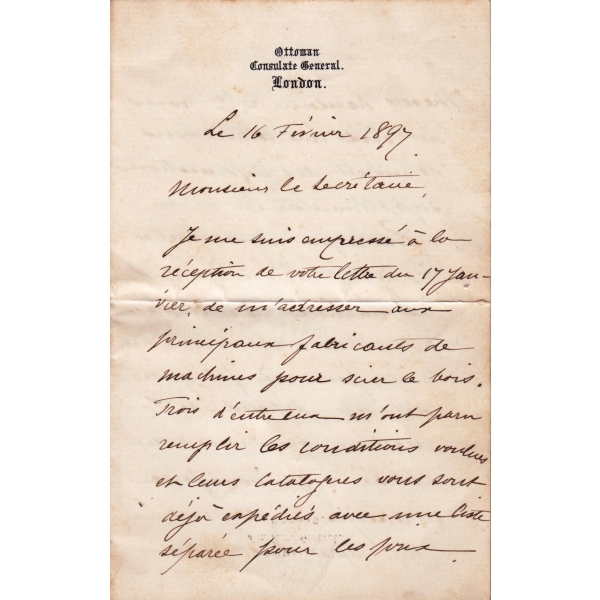 Ottoman
Consulate General.
London.
Le 16 Février 1897
Monsieur le Secrétaire,
Je me suis empressé à la
réception de votre lettre du 17 Jan-
vier, de m'adresser aux
principaux fabricants de
machines pour scier le bois.
Trois d'entre eux m'ont paru
remplir les conditions voulues
et leurs catalogues vous sont
déjà expédiés avec une liste
séparée pour les prix